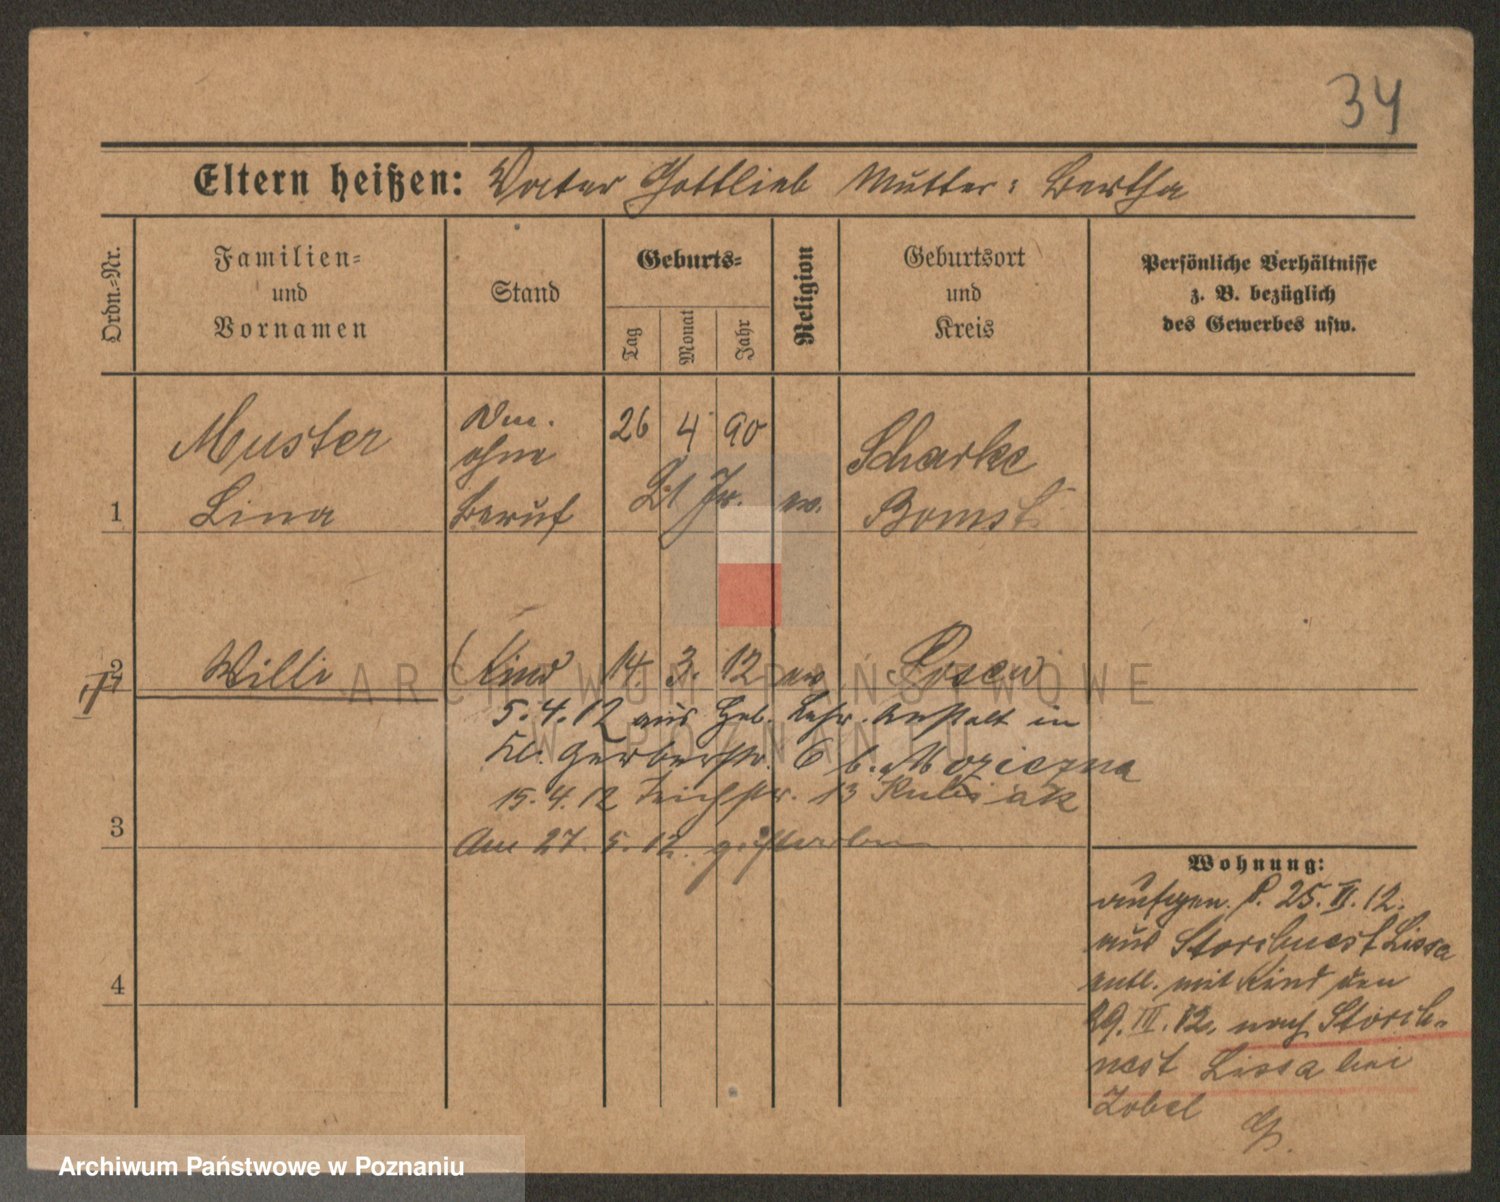 34
Eltern heißen: Vater Gottlieb Mutter: Bertha
Ordn.-Nr.
Familien-
und
Vornamen
Stand
Geburts-
Tag
Monat
Jahr
Religion
Geburtsort
und
Kreis
Persönliche Verhältnisse
z. B. bezüglich
des Gewerbes usw.
Muster
ohne
26 4 90
Scharke
1 Lina Beruf 21 J. ev. Bomst
2 Willi Kind 14. 3. 12 ev Posen
5.4.12 aus Heb. Lehr. Anstalt in
Kl. Gerberstr. 6 b. Moziczna
15.4.12 Teichstr. 13 Kubiak
3
Am 27. 5. 12. gestorben
Wohnung:
aufgen. P. 25. II. 12.
aus Storchnest Lissa
4
entl. mit Kind den
29. III. 12. nach Storch-
nest Lissa bei
Zobel
ARCHIWUM PAŃSTWOWE
W POZNANIU
Archiwum Państwowe w Poznaniu